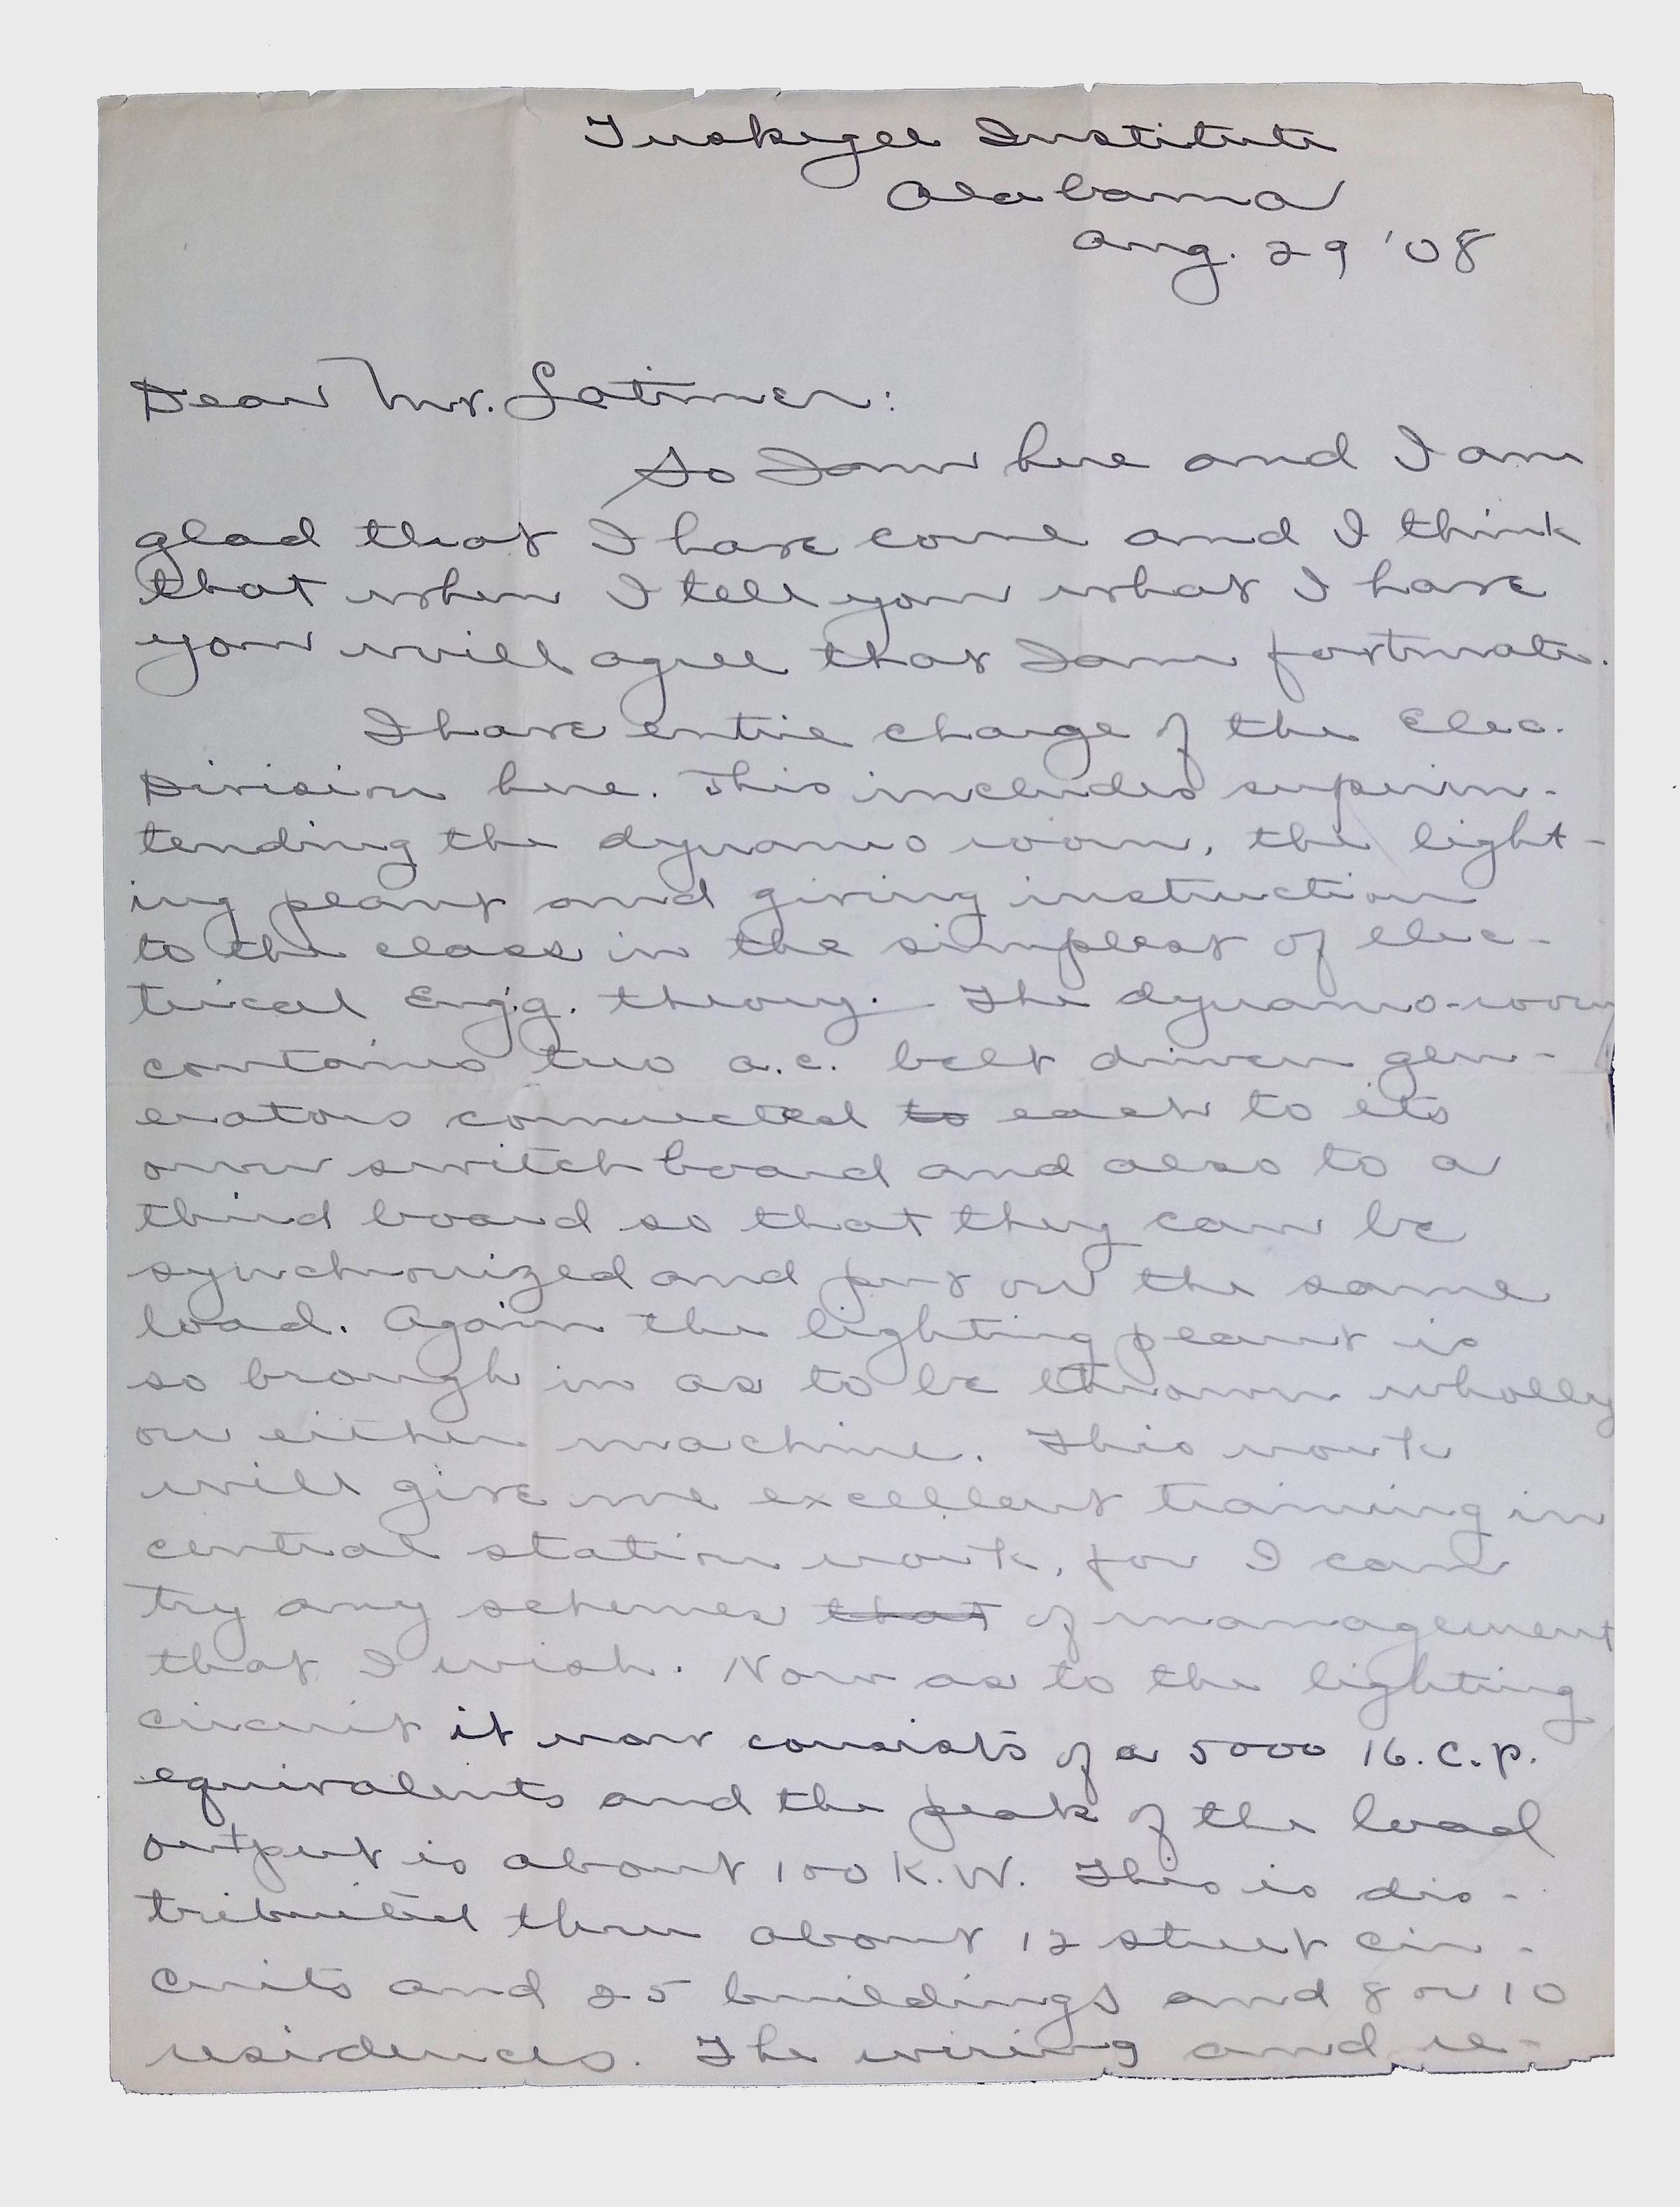 Tuskegee Institute
Alabama
Aug. 29 '08
Dear Mr. Latimer:
So I am here and I am
glad that I have come and I think
that when I tell you what I have
you will agree that I am fortunate.
I have entire charge of the Elec.
Division here. This includes superin-
tending the dynamo room, the light-
ing plant and giving instruction
to the class in the simplest of elec-
trical Eng'g. theory. The dynamo-room
contains two a.c. belt driven gen-
erators connected to each to its
own switchboard and also to a
third board so that they can be
synchronized and put on the same
load. Again the lighting plant is
so brough in as to be thrown wholly
on either machine. This work
will give me excellent training in
central station work, for I can
try any schemes that of management
that I wish. Now as to the lighting
circuit it now consists of a 5000 16. c.p.
equivalents and the peak of the load
output is about 100 K.W. This is dis-
tributed thru about 12 street cir-
cuits and 25 buildings and 8 or 10
residences. The wiring and re-